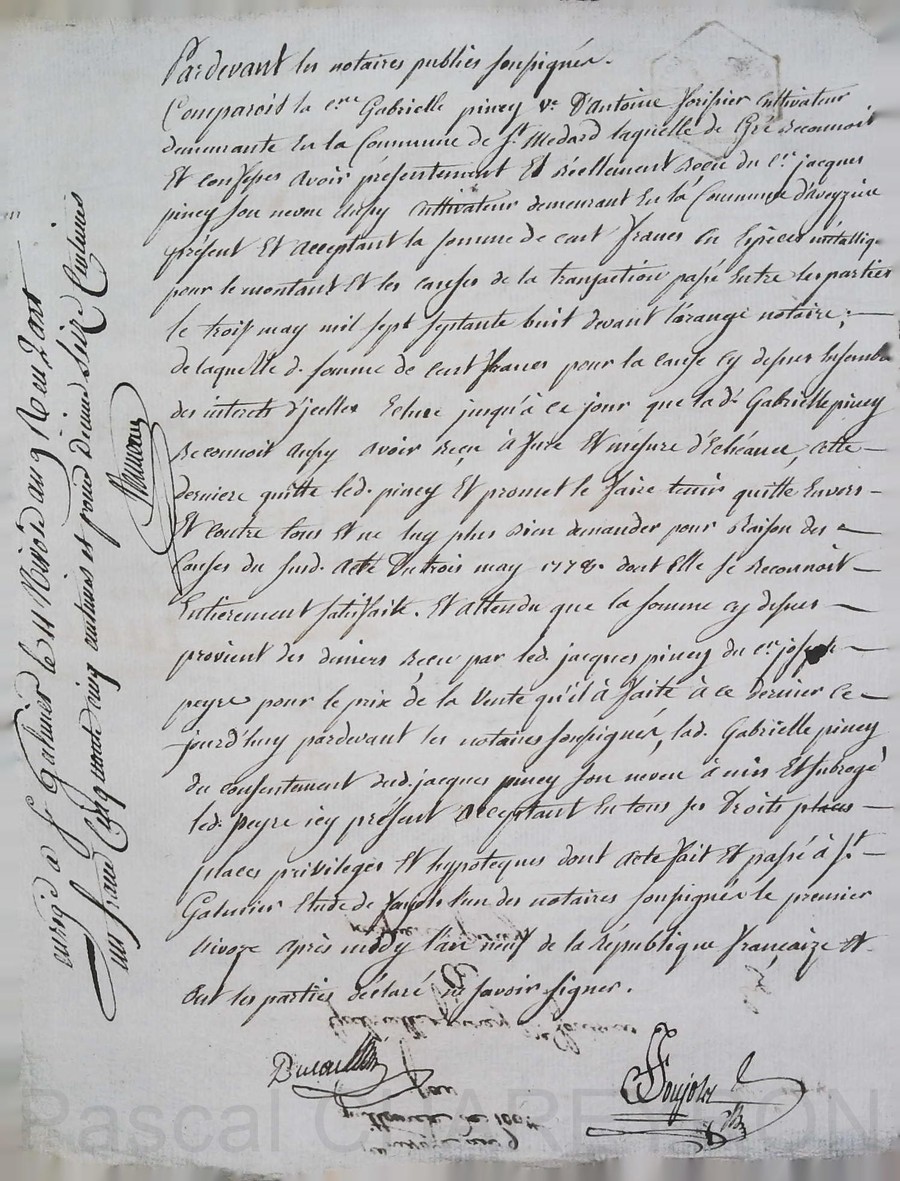 Pardevant les notaires publics soussignés.
Comparoit la cne Gabrielle piney ve D'antoine forissier Cultivateur
demeurante En la Commune de St. Medard laquelle de Gré Reconnoit
Et confesse avoir présentement Et Réellement Recu du cen jacques
piney son neveu aussy Cultivateur demeurant En la Commune d'aveyzieu
présent Et acceptant la somme de cent francs En Espèces métalliq.
pour le montant Et les causes de la transaction passé Entre les parties
le trois may mil sept septante huit devant larange notaire;
de laquelle d. somme de cent francs pour la cause cy dessus Ensemble
des interets d'jcelles Echus jusqu'à ce jour que la de Gabrielle piney
Reconnoit aussy avoir Recu à fure Et mesure d'Echéance, cette
derniere quitte led. piney Et promet le faire tenir quitte Envers
Et contre tous Et ne luy plus Rien demander pour Raison des
Causes du susd. acte Du trois may 1778. dont Elle se Reconnoit
Entièrement satisfaite. Et attendu que la somme cy dessus
provient des deniers Recu par led. jacques piney du cen joseph
peyre pour le prix de la Vente qu'il à faite à ce dernier ce
jourd'huy pardevant les notaires soussignés, lad. Gabrielle piney
du consentement dud. jacques piney son neveu à mis Et subrogé
led. peyre icy présent acceptant En tous ses Droits places
places privileges Et hypoteques dont acte fait Et passé à St
Galmier Etude de l'un des notaires soussignés le premier
Nivoze après midy l'an neuf de la République françaize Et
Ont les parties déclaré ne savoir signer.
enrgé à St Galmier le 11 Nivose an 9 Reçu
un franc Cinquante cinq centimes et pour Decime Seize Centimes